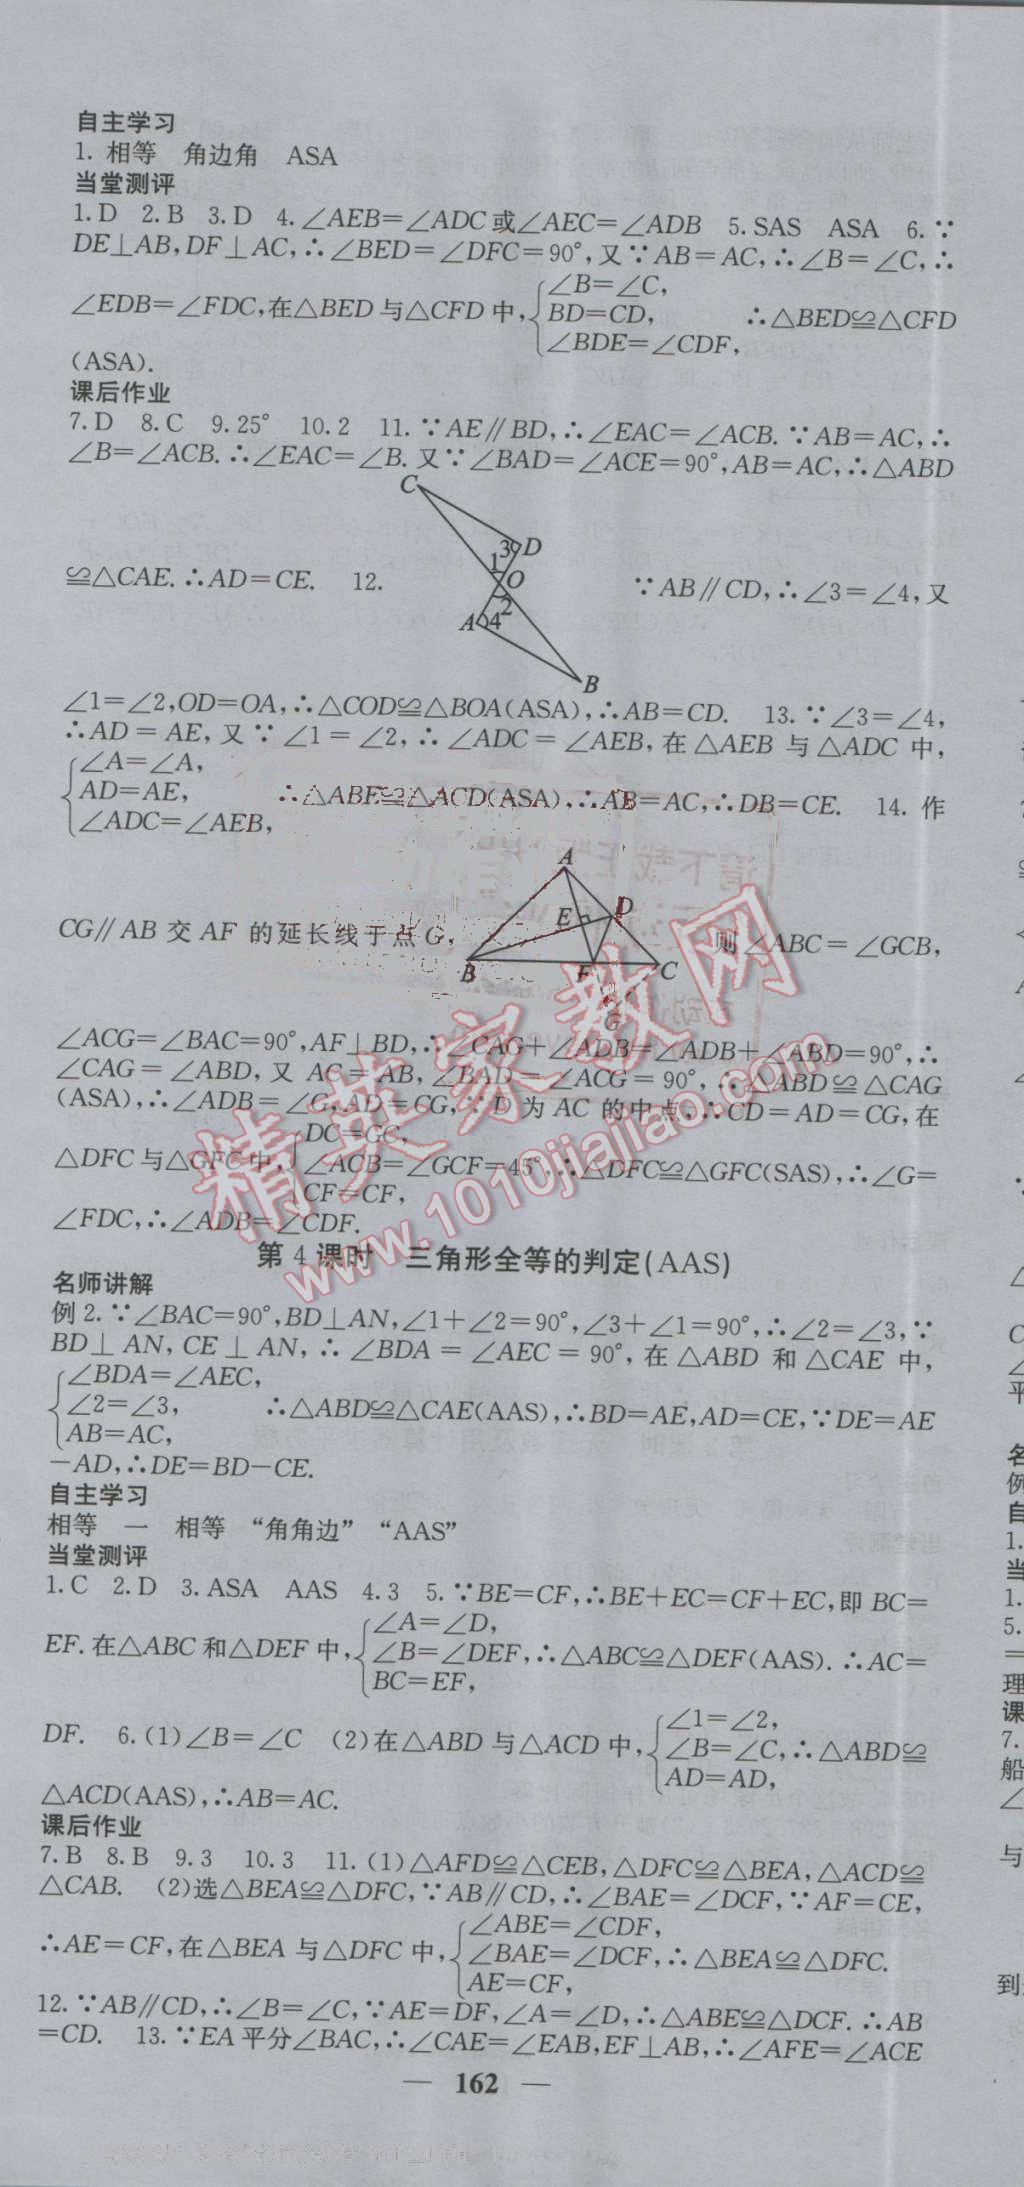 自主学习
1. 相等　角边角　ASA
当堂测评
1.D　2.B　3.D　4.∠AEB=∠ADC或∠AEC=∠ADB　5.SAS　ASA　6.∵
DE⊥AB,DF⊥AC,∴∠BED=∠DFC=90°,又∵AB=AC,∴∠B=∠C,∴
∠B=∠C,
∠EDB=∠FDC,在△BED与△CFD中,{BD=CD,　∴△BED≌△CFD
∠BDE=∠CDF,
(ASA).
课后作业
7.D　8.C　9.25°　10.2　11.∵AE∥BD,∴∠EAC=∠ACB.∵AB=AC,∴
∠B=∠ACB.∴∠EAC=∠B.又∵∠BAD=∠ACE=90°,AB=AC,∴△ABD
C
3 D
1
≌△CAE.∴AD=CE.　12.　O　∵AB∥CD,∴∠3=∠4,又
2
A 4
B
∠1=∠2,OD=OA,∴△COD≌△BOA(ASA),∴AB=CD.　13.∵∠3=∠4,
∴AD=AE,又∵∠1=∠2,∴∠ADC=∠AEB,在△AEB与△ADC中,
∠A=∠A,
{AD=AE,　∴△ABE≌△ACD(ASA),∴AB=AC,∴DB=CE.　14.作
∠ADC=∠AEB,
A
E D
CG∥AB交AF的延长线于点G,　则∠ABC=∠GCB,
B F C
G
∠ACG=∠BAC=90°,AF⊥BD,∴∠CAG+∠ADB=∠ADB+∠ABD=90°,∴
∠CAG=∠ABD,又AC=AB,∠BAD=∠ACG=90°,∴△ABD≌△CAG
(ASA),∴∠ADB=∠G,AD=CG,∵D为AC的中点,∴CD=AD=CG,在
DC=GC,
△DFC与△GFC中,{∠ACB=∠GCF=45°,∴△DFC≌△GFC(SAS),∴∠G=
CF=CF,
∠FDC,∴∠ADB=∠CDF.
第4课时　三角形全等的判定(AAS)
名师讲解
例2.∵∠BAC=90°,BD⊥AN,∠1+∠2=90°,∠3+∠1=90°,∴∠2=∠3,∵
BD⊥AN,CE⊥AN,∴∠BDA=∠AEC=90°,在△ABD和△CAE中,
∠BDA=∠AEC,
{∠2=∠3,　∴△ABD≌△CAE(AAS),∴BD=AE,AD=CE,∵DE=AE
AB=AC,
-AD,∴DE=BD-CE.
自主学习
相等　一　相等　“角角边”　“AAS”
当堂测评
1.C　2.D　3.ASA　AAS　4.3　5.∵BE=CF,∴BE+EC=CF+EC,即BC=
∠A=∠D,
EF.在△ABC和△DEF中,{∠B=∠DEF,∴△ABC≌△DEF(AAS).∴AC=
BC=EF,
∠1=∠2,
DF.　6.(1)∠B=∠C　(2)在△ABD与△ACD中,{∠B=∠C,∴△ABD≌
AD=AD,
△ACD(AAS),∴AB=AC.
课后作业
7.B　8.B　9.3　10.3　11.(1)△AFD≌△CEB,△DFC≌△BEA,△ACD≌
△CAB.　(2)选△BEA≌△DFC,∵AB∥CD,∴∠BAE=∠DCF,∵AF=CE,
∠ABE=∠CDF,
∴AE=CF,在△BEA与△DFC中,{∠BAE=∠DCF,∴△BEA≌△DFC.
AE=CF,
12.∵AB∥CD,∴∠B=∠C,∵AE=DF,∠A=∠D,∴△ABE≌△DCF.∴AB
=CD.　13.∵EA平分∠BAC,∴∠CAE=∠EAB,EF⊥AB,∴∠AFE=∠ACE
— 162 —
精英家教网
www.1010jiajiao.com